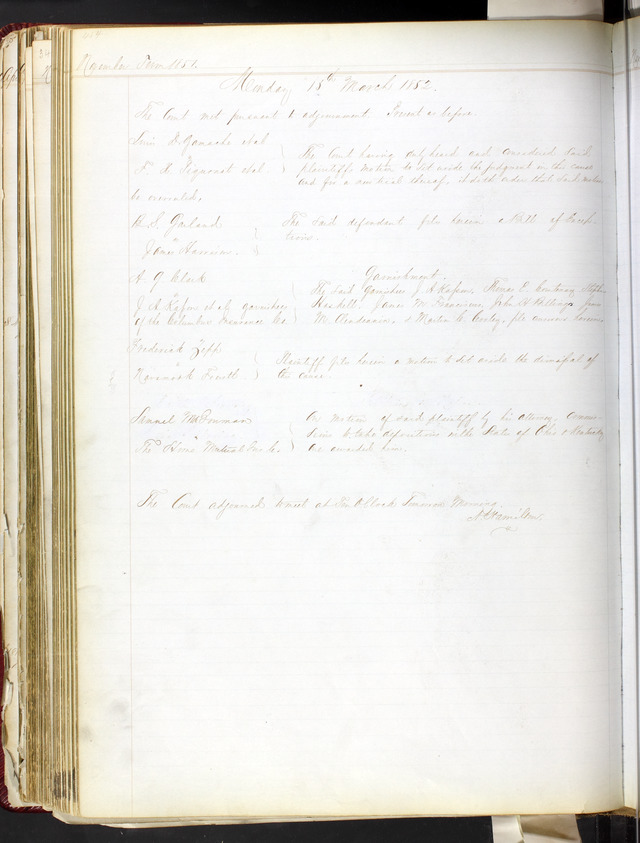 November Term 1851.
Monday 15th March 1852.
The Court met pursuant to adjournment. Present as before.
Louis D. Gamache et al
F. X. Vigeant et al.
The Court having only heard and considered said
plaintiffs motion to set aside the judgment in this cause
and for a new trial thereof, doth order that said motion
be overruled.
H. S. Garland
vs
James Harrison.
The said defendant files herein a Bill of Excep
tions.
A. G. Clark
vs
J. A. et al. garnishees
of the Columbus Insurance Co.
Garnishment.
The said Garnishees J. A. Thomas E. Courtenay Stephen
Haskell James M. John H. James
M. & Martin files answers herein.
Frederick Zipp
vs
Plaintiff files herein a motion to set aside the dismissal of
the cause.
Samuel McGowman
vs
The Home Mutual Ins. Co.
On motion of said plaintiff by his attorney, Commis
sions to take depositions in the States of Ohio & Kentucky
are awarded him.
The Court adjourned to meet at Ten O'Clock Tomorrow Morning
A. Hamilton.